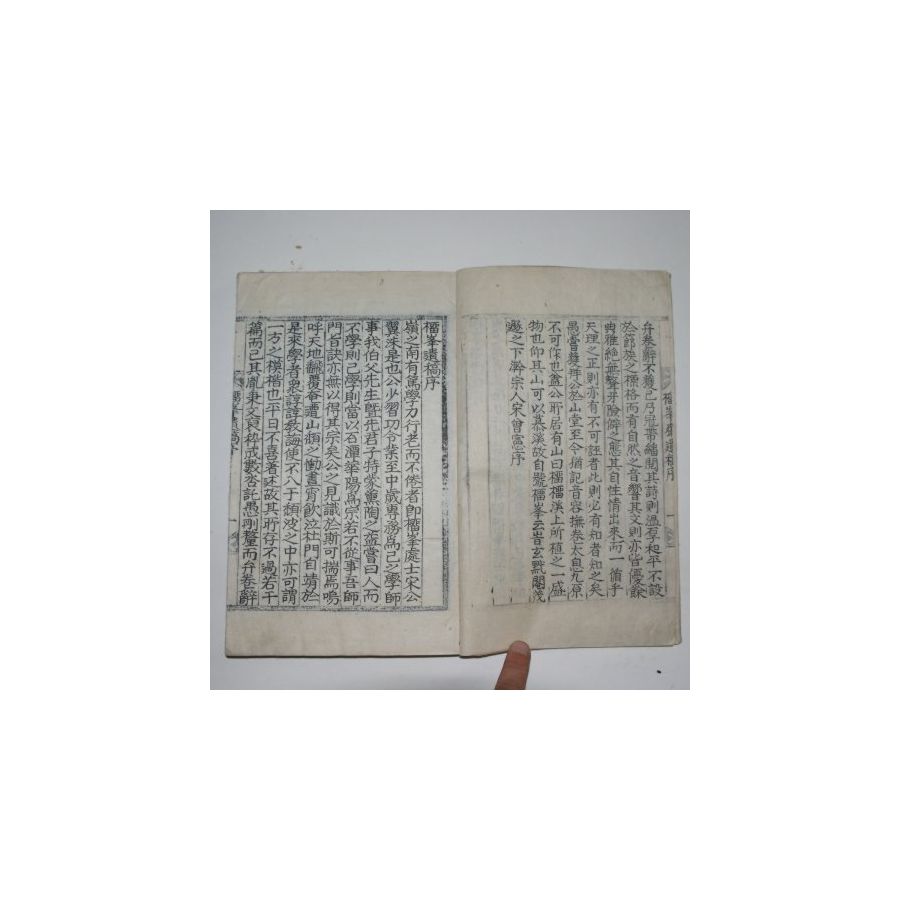 橊峯遺稿序
嶺之南有篤學力行老而不倦者卽橊峯處士宋公
翼洙是也公少習功令業至中歲專務爲己之學師
事我伯父先生曁先君子特蒙薰陶之益嘗曰人而
不學則已學則當以石潭華陽爲宗若不從事吾師
門旨訣亦無以得其宗矣公之見識於斯可揣焉嗚
呼天地飜覆奄遭山頹之慟晝宵飮泣杜門自靖於
是來學者衆諄諄敎誨使不入于頹波之中亦可謂
一方之模楷也平日不喜著述故其所存不過若干
篇而已其胤秉文裒稡成數沓託愚剛釐而弁卷辭
弁卷辭不獲已乃冠帶繙閱其詩則溫厚和平不設
於節族之標格而有自然之音響其文則亦皆優餘
典雅絶無聱牙險僻之態其自性情出來而一循乎
天理之正則亦有不可誣者此則必有知者知之矣
愚嘗難拜公於山堂至今猶記音容撫卷太息九原
不可作也盖公所居有山曰橊橊溪上所植之一盛
物也仰其山可以慕溪故自號橊峯云旹玄黓閹茂
遯之下澣宗人宋曾憲序
橊峯遺稿序
一